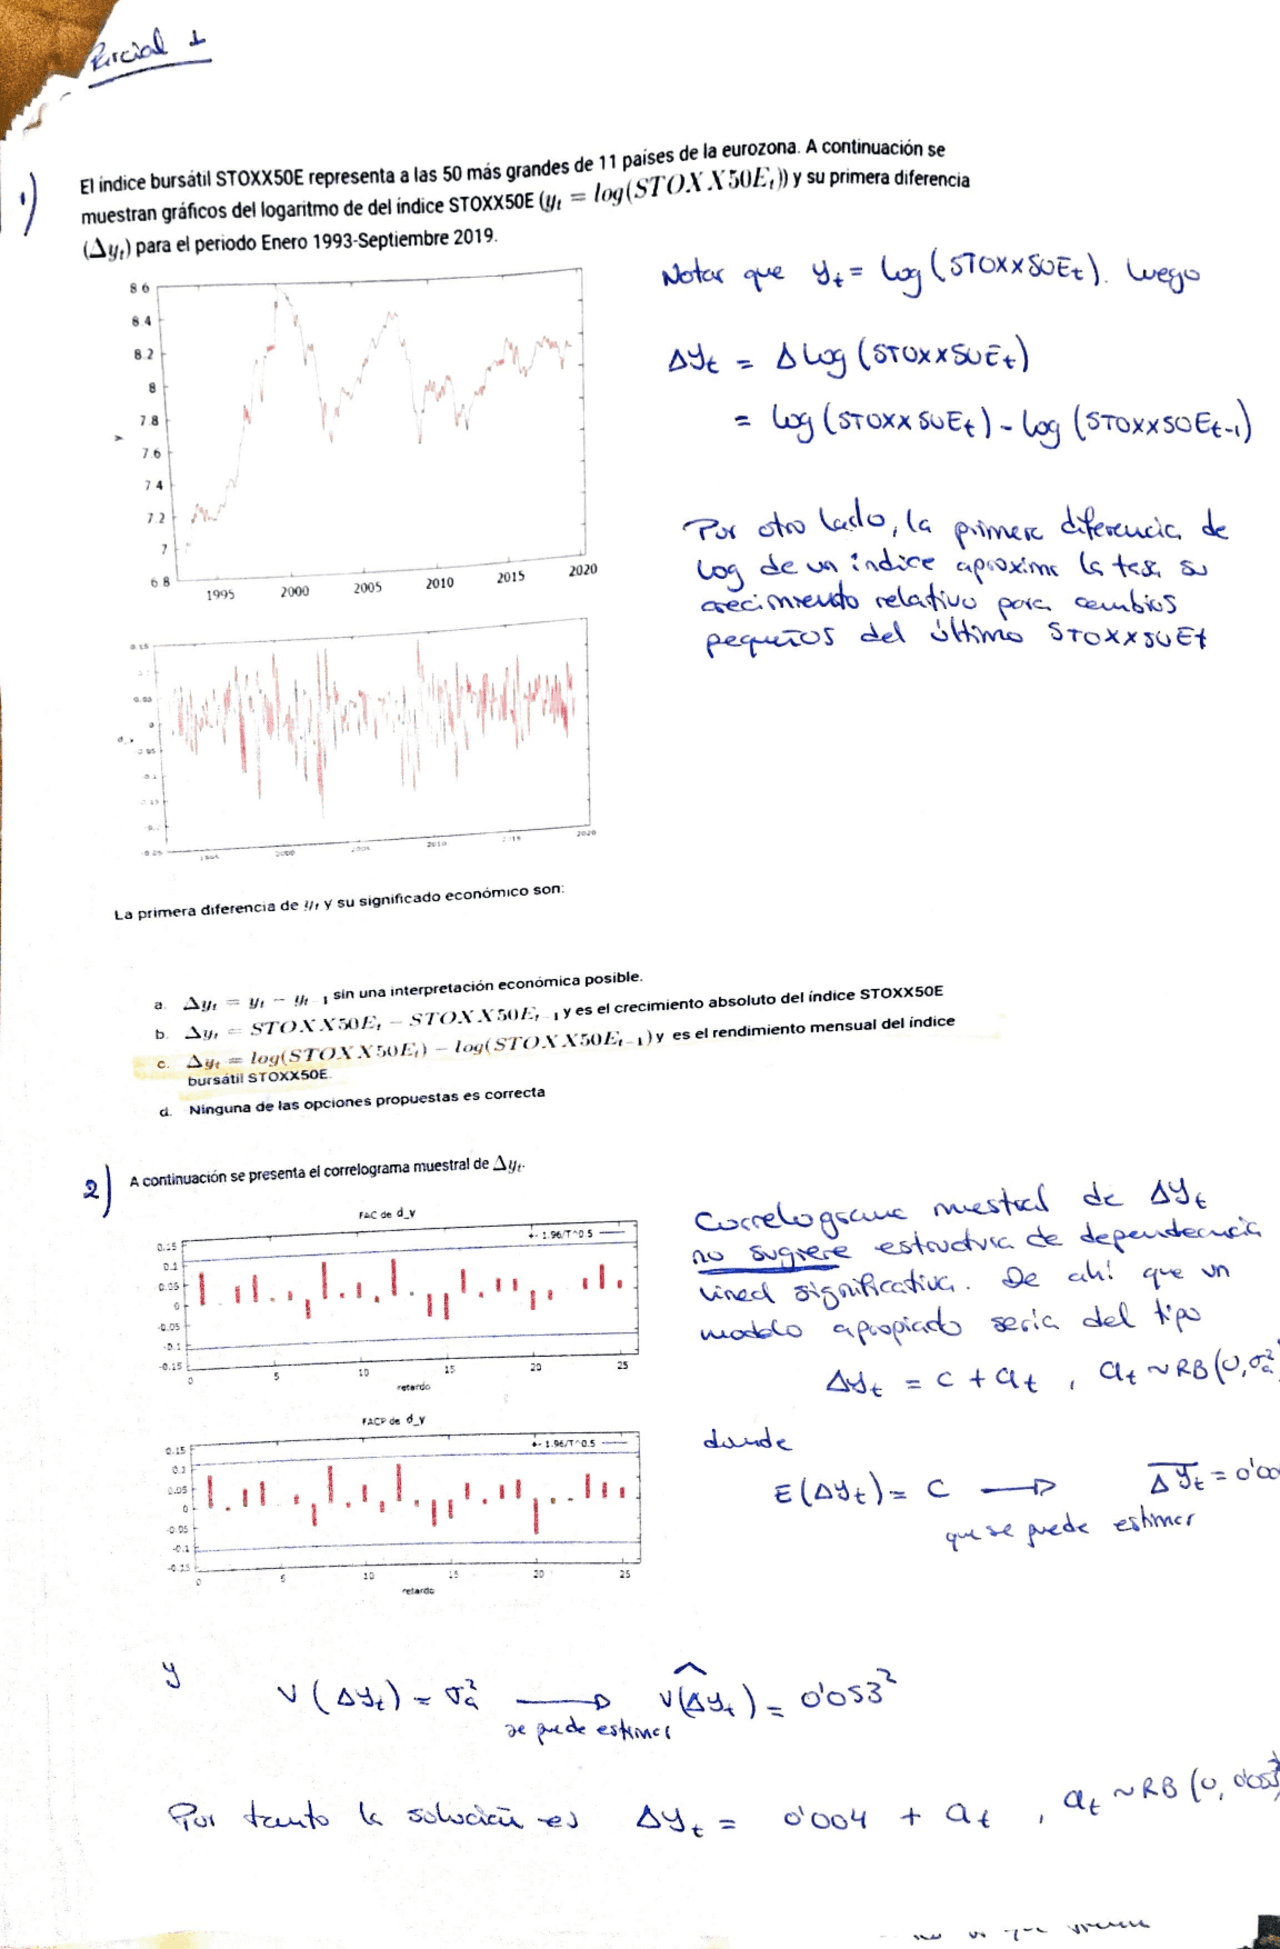 Parcial 1
1)
El índice bursátil STOXX50E representa a las 50 más grandes de 11 países de la eurozona. A continuación se
muestran gráficos del logaritmo de del índice STOXX50E (yₜ = log(STOXX50Eₜ)) y su primera diferencia
(Δyₜ) para el periodo Enero 1993-Septiembre 2019.
Notar que yₜ = log(STOXX50Eₜ). Luego
Δyₜ = Δ Log (STOXX50Eₜ)
= log (STOXX50Eₜ) - log (STOXX50Eₜ₋₁)
Por otro lado, la primera diferencia de
Log de un índice aproxima la tasa su
crecimiento relativo para cambios
pequeños del último STOXX50Et
8 6
8.4
8.2
8
7.8
7.6
7 4
7.2
7
6 8
y
1995 2000 2005 2010 2015 2020
0.15
0.05
0
-0.05
-0.1
-0.25
2000 2005 2010 2015 2020
La primera diferencia de yₜ y su significado económico son:
a. Δyₜ = yₜ − yₜ₋₁ sin una interpretación económica posible.
b. Δyₜ = STOXX50Eₜ − STOXX50Eₜ₋₁ y es el crecimiento absoluto del índice STOXX50E
c. Δyₜ = log(STOXX50Eₜ) − log(STOXX50Eₜ₋₁) y es el rendimiento mensual del índice
bursátil STOXX50E.
d. Ninguna de las opciones propuestas es correcta
2)
A continuación se presenta el correlograma muestral de Δyₜ.
FAC de d_y
+- 1.96/T^0.5
0.15
0.1
0.05
0
-0.05
-0.1
-0.15
0 5 10 15 20 25
retardo
FACP de d_y
+- 1.96/T^0.5
0.15
0.1
0.05
0
-0.05
-0.1
-0.15
0 5 10 15 20 25
retardo
Correlograma muestral de Δyₜ
no sugiere estructura de dependencia
lineal significativa. De ahí que un
modelo apropiado sería del tipo
Δyₜ = c + aₜ , aₜ ~ RB(0,σₐ²
donde
E(Δyₜ) = c → Δyₜ = 0'00
que se puede estimar
y
V(Δyₜ) = σₐ² → V(Δyₜ) = 0'053²
se puede estimar
Por tanto la solución es Δyₜ = 0'004 + aₜ , aₜ ~ RB (0, 0'053²
que